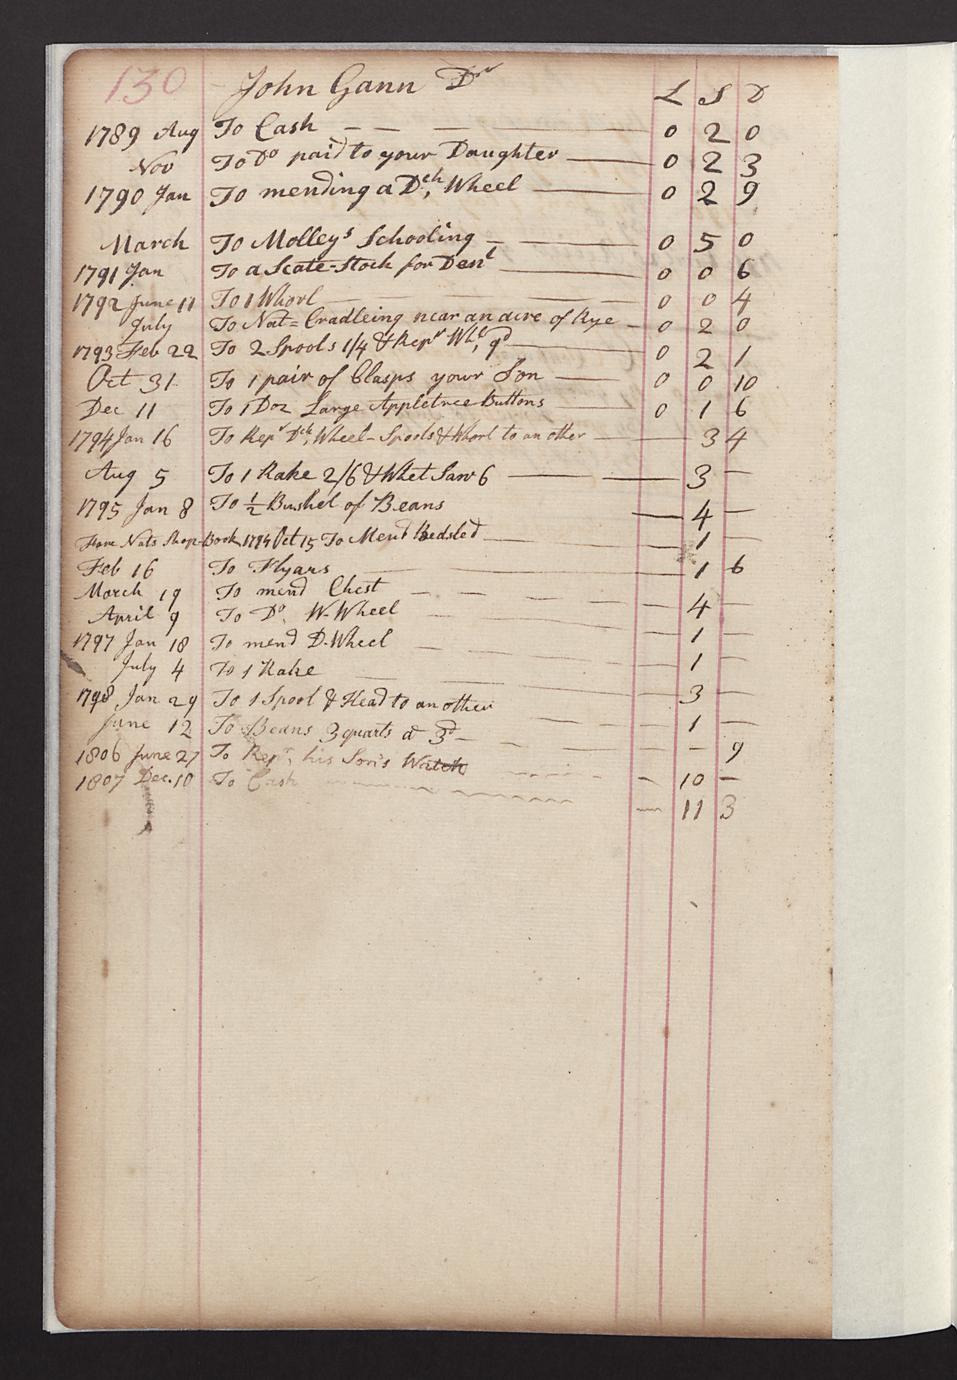 130 John Gann Dr L S D
1789 Aug To Cash 0 2 0
Nov To Do paid to your Daughter 0 2 3
1790 Jan To mending a Dch, Wheel 0 2 9
March To Molleys Schooling 0 5 0
1791 Jan To a Scate-Stock for Dent 0 0 6
1792 June 11 To 1 Whorl 0 0 4
July To Nat= Cradleing near an acre of Rye 0 2 0
1793 Feb 22 To 2 Spools 1/4 & Repr Whl, 9d 0 2 1
Oct 31 To 1 pair of Clasps your Son 0 0 10
Dec 11 To 1 Doz Large Appletree Buttons 0 1 6
1794 Jan 16 To Repr Dch, Wheel - Spools & Whorl to an other 3 4
Aug 5 To 1 Rake 2/6 & Whet Saw 6 3 —
1795 Jan 8 To 1/2 Bushel of Beans 4 —
From Nats Shop-Book 1794 Oct 15 To Mend Bedsted 1 —
Feb 16 To Flyars 1 6
March 19 To mend Chest 4 —
April 9 To Do. W-Wheel 1 —
1797 Jan 18 To mend D-Wheel 1 —
July 4 To 1 Rake 3 —
1798 Jan 29 To 1 Spool & Head to an other 1 —
June 12 To Beans 3 quarts a 3d — 9
1806 June 27 To Repr, his Son's Watch — 10 —
1807 Dec. 10 To Cash — 11 3